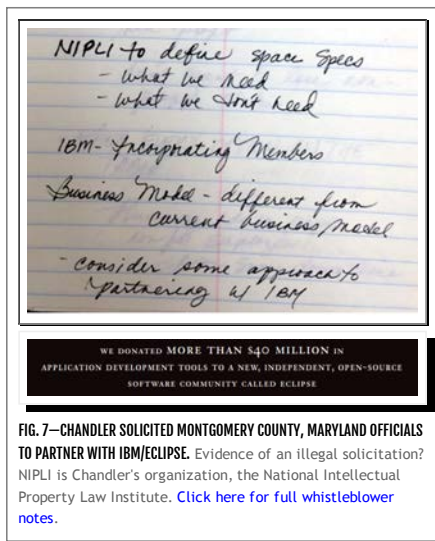 NIPLI to define space specs
- what we need
- what we don't need
IBM- Incorporating Members
Business Model - different from
current business model
- consider some approach to
partnering w/ IBM
WE DONATED MORE THAN $40 MILLION IN
APPLICATION DEVELOPMENT TOOLS TO A NEW, INDEPENDENT, OPEN-SOURCE
SOFTWARE COMMUNITY CALLED ECLIPSE
FIG. 7—CHANDLER SOLICITED MONTGOMERY COUNTY, MARYLAND OFFICIALS
TO PARTNER WITH IBM/ECLIPSE. Evidence of an illegal solicitation?
NIPLI is Chandler's organization, the National Intellectual
Property Law Institute. Click here for full whistleblower
notes.